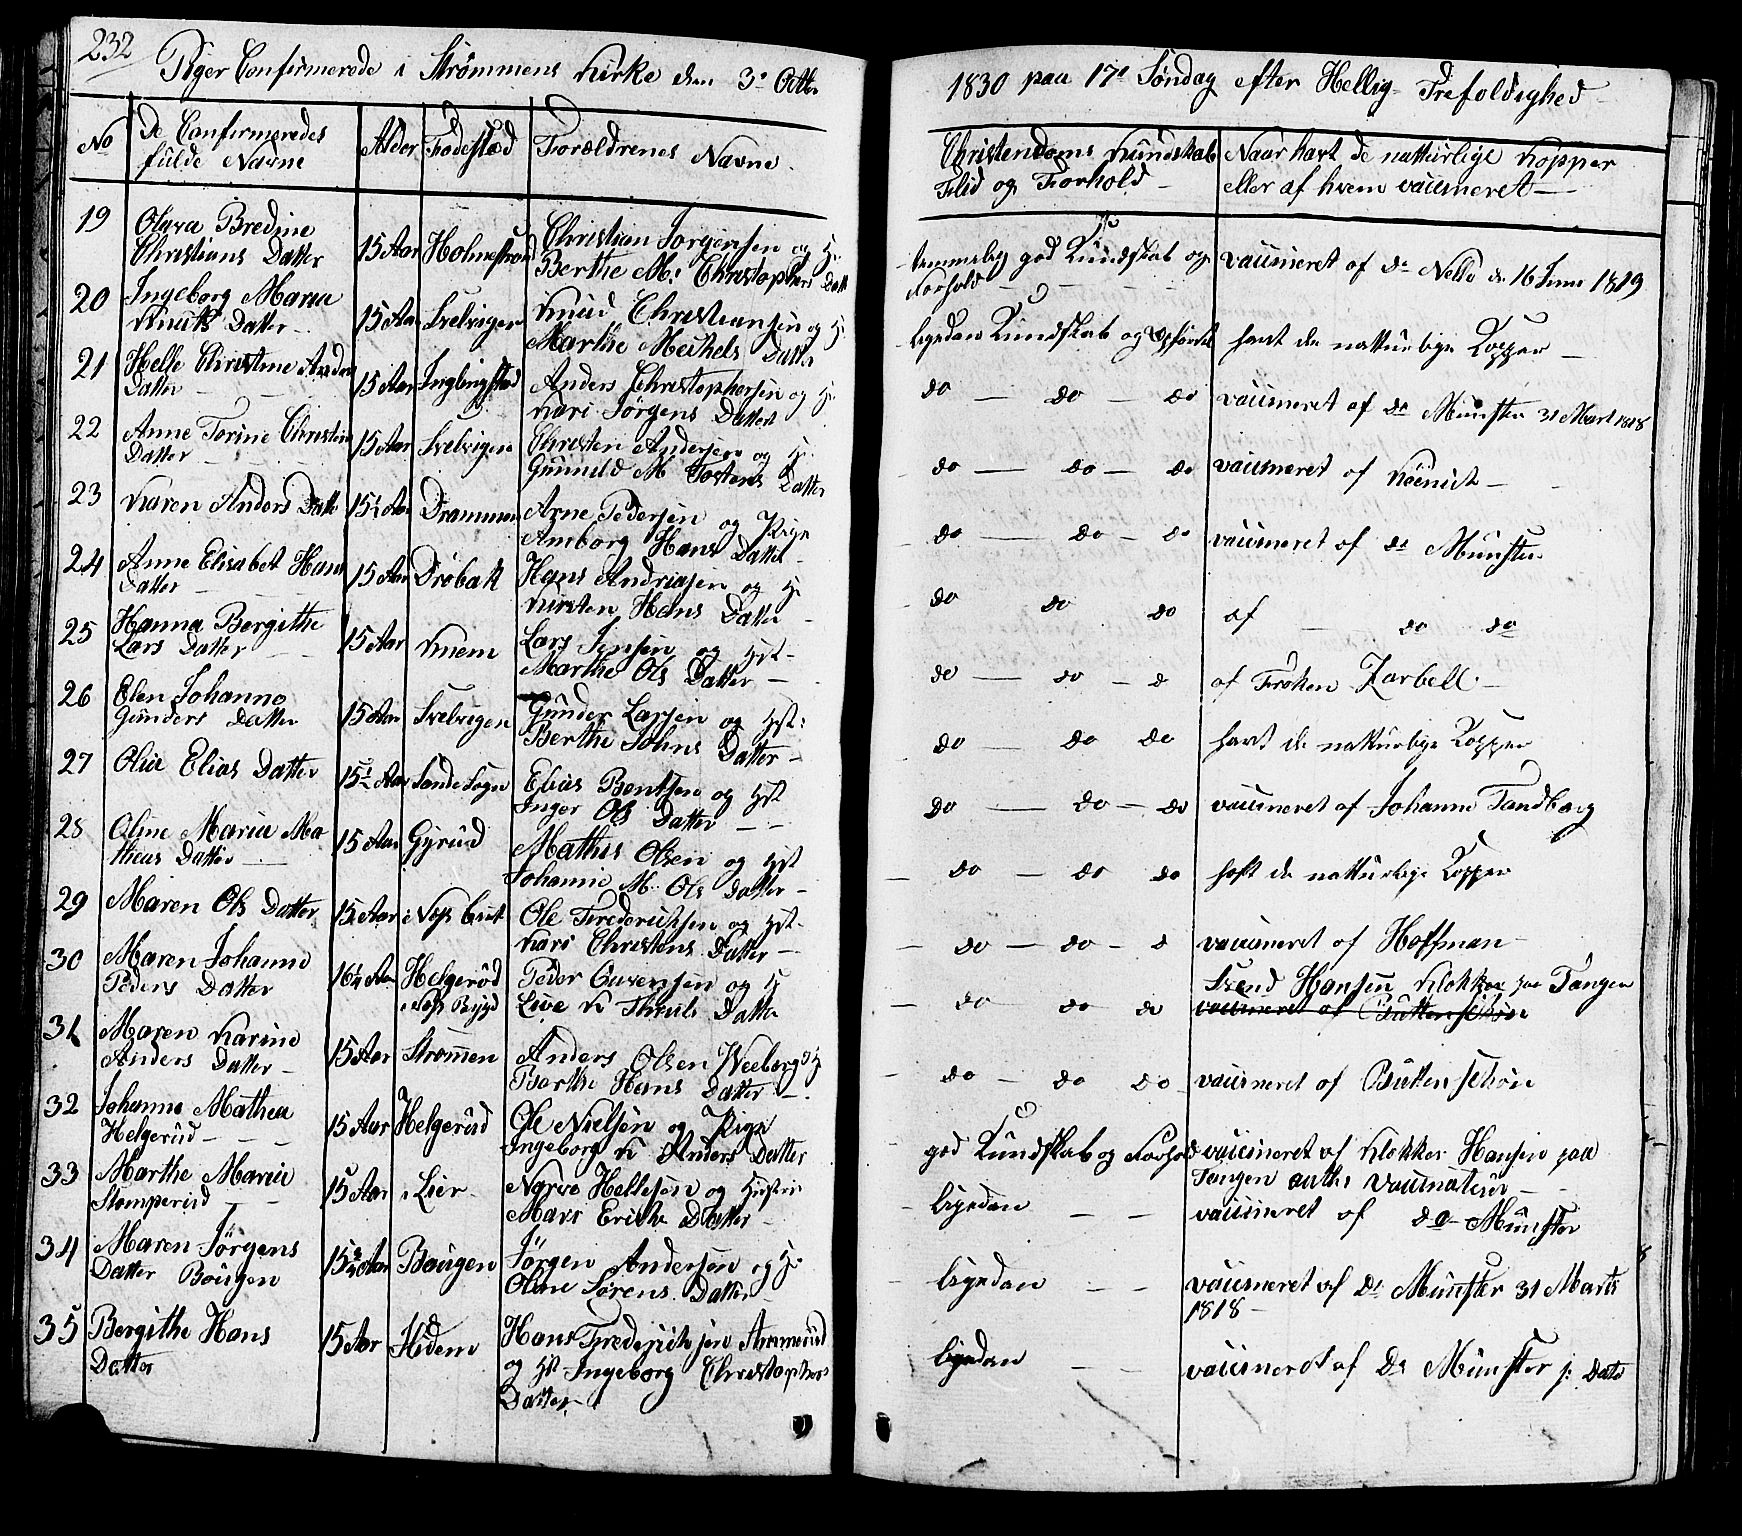 232
Piger Confirmerede i Strømmens Kirke den 3e Octbr
1830 paa 17e Søndag efter Hellig Trefoldighed
No
De Confirmeredes
fulde Navne
Alder
Fødested
Forældrenes Navne
Christendoms Kundskab
Flid og Forhold
Naar havt de natturlige Kopper
eller af hvem vaccineret
19
Olava Bredine
Christians Datter
15 Aar
Holmestrand
Christian Jørgensen og H
Berthe M: Christophers Datt
temmelig god Kundskab og
Forhold
vaccineret af Dr Nello d. 16 Juni 1819
20
Ingeborg Maria
Knuts Datter
15 Aar
Svelvigen
Knud Christiansen og H
Marthe Meikels Datter
ligedan Kundskab og Opførsel
havt de natturlige Kopper
21
Helle Christine Anders
Datter
15 Aar
Anders Christophersen og H
Kari Jørgens Datter
do do do
vaccineret af Dr Munster 31 Mart 1818
22
Anne Torine Christens
Datter
15 Aar
Svelvigen
Christen Andersen og H
Gunild M Tostens Datter
do do do
vaccineret af
23
Karen Anders Datt
15½ Aar
Drammen
Arne Pedersen og Pige
Amborg Hans Datter
do do do
vaccineret af Dr Munster
24
Anne Elisabet Hans
Datter
15 Aar
Drøbak
Hans Andriasen og H
Kirsten Hans Datter
do do do
af do do
25
Hanna Bergithe
Lars Datter
15 Aar
Knem
Lars Jensen og Hst
Marthe Ols Datter
do do d
af Frøken Zarbell
26
Elen Johanne
Gunders Datter
15 Aar
Svelvigen
Gunder Larsen og Hst:
Berthe Johns Datter
do do do
havt de natturlige Kopper
27
Olia Elias Datter
15½ Aar
Sande Sogn
Elias Bentsen og Hst
Inger Ols Datter
do do do
vaccineret af Johanne Tandberg
28
Oline Maria Ma
theas Datter
15 Aar
Gyrud
Mathis Olsen og Hst
Johanne M. Ols Datter
do do do
haft de natturlige Kopper
29
Maren Ols Datter
15 Aar
Ole Frederiksen og Hst
Kari Christens Datter
do do d
vaccineret af Hoffman
30
Maren Johanne
Peders Datter
16½ Aar
Helgerud
Peder Evensen og H
Live K Thruls Datter
do do do
Svend Hansen Klokker paa Tangen
vaccineret af Buttenschön
31
Maren Karine
Anders Datter
15 Aar
Strømmen
Anders Olsen Weeberg og H
Berthe Hans Datter
do do do
vaccineret af Buttenschön
32
Johanne Mathea
Helgerud
15 Aar
Helgerud
Ole Nielsen og Pige
Ingeborg K Anders Datter
god Kundskab og Forhold
vaccineret af Klokker Hansen paa
Tangen auth: Vaccinateur
33
Marthe Maria
Stamperud
15 Aar
i Lier
Narve Hellesen og Hustru
Mari Eriks Datter
ligedan
vaccineret af Dr Münster
34
Maren Jørgens
Datter Bougen
15¾ Aar
Bougen
Jørgen Andersen og H
Oline Sørens Datter
ligedan
vaccineret af Dr Münster 31 Marts
1818
35
Bergithe Hans
Datter
15 Aar
Hedem
Hans Frederiksen
og Hst Ingeborg Christophers
Datter
ligedan
vaccineret af Dr Munster s: Dato